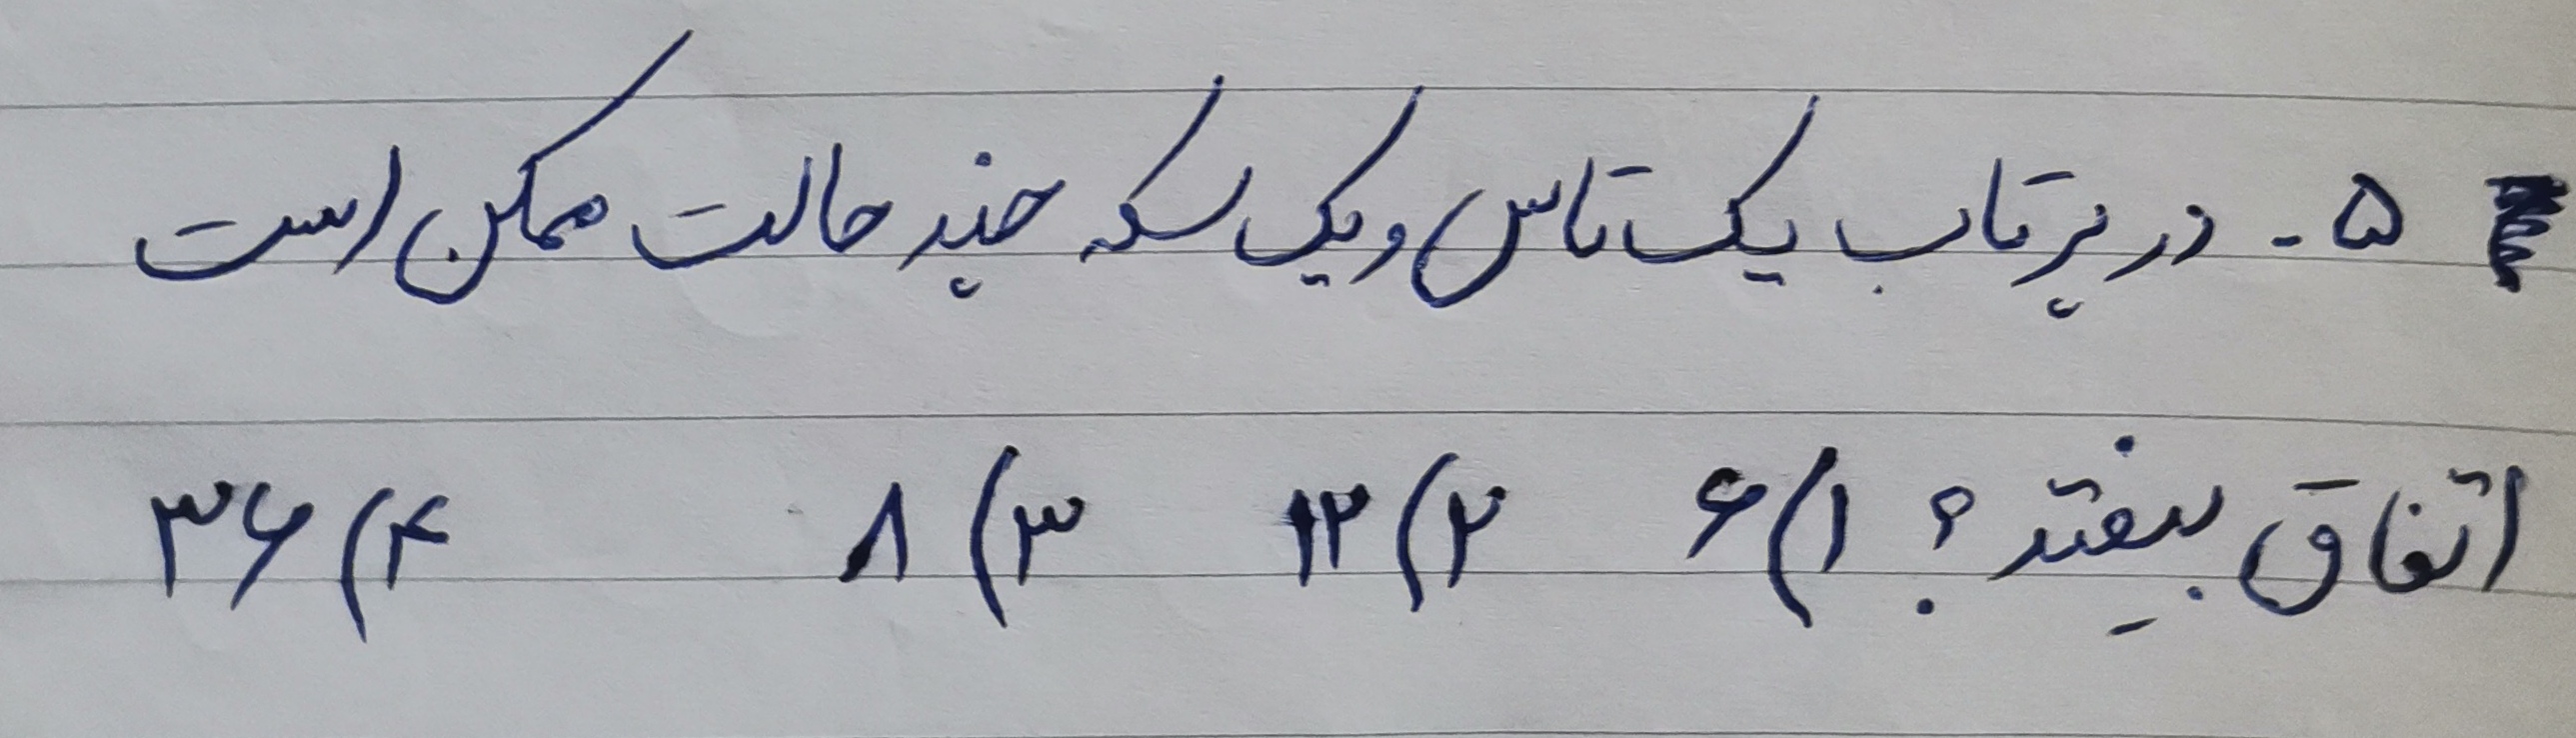 ۵ - در پرتاب یک تاس و یک سکه چند حالت ممکن است
اتفاق بیفتد؟ ۱) ۶ ۲) ۱۲ ۳) ۸ ۴) ۳۶